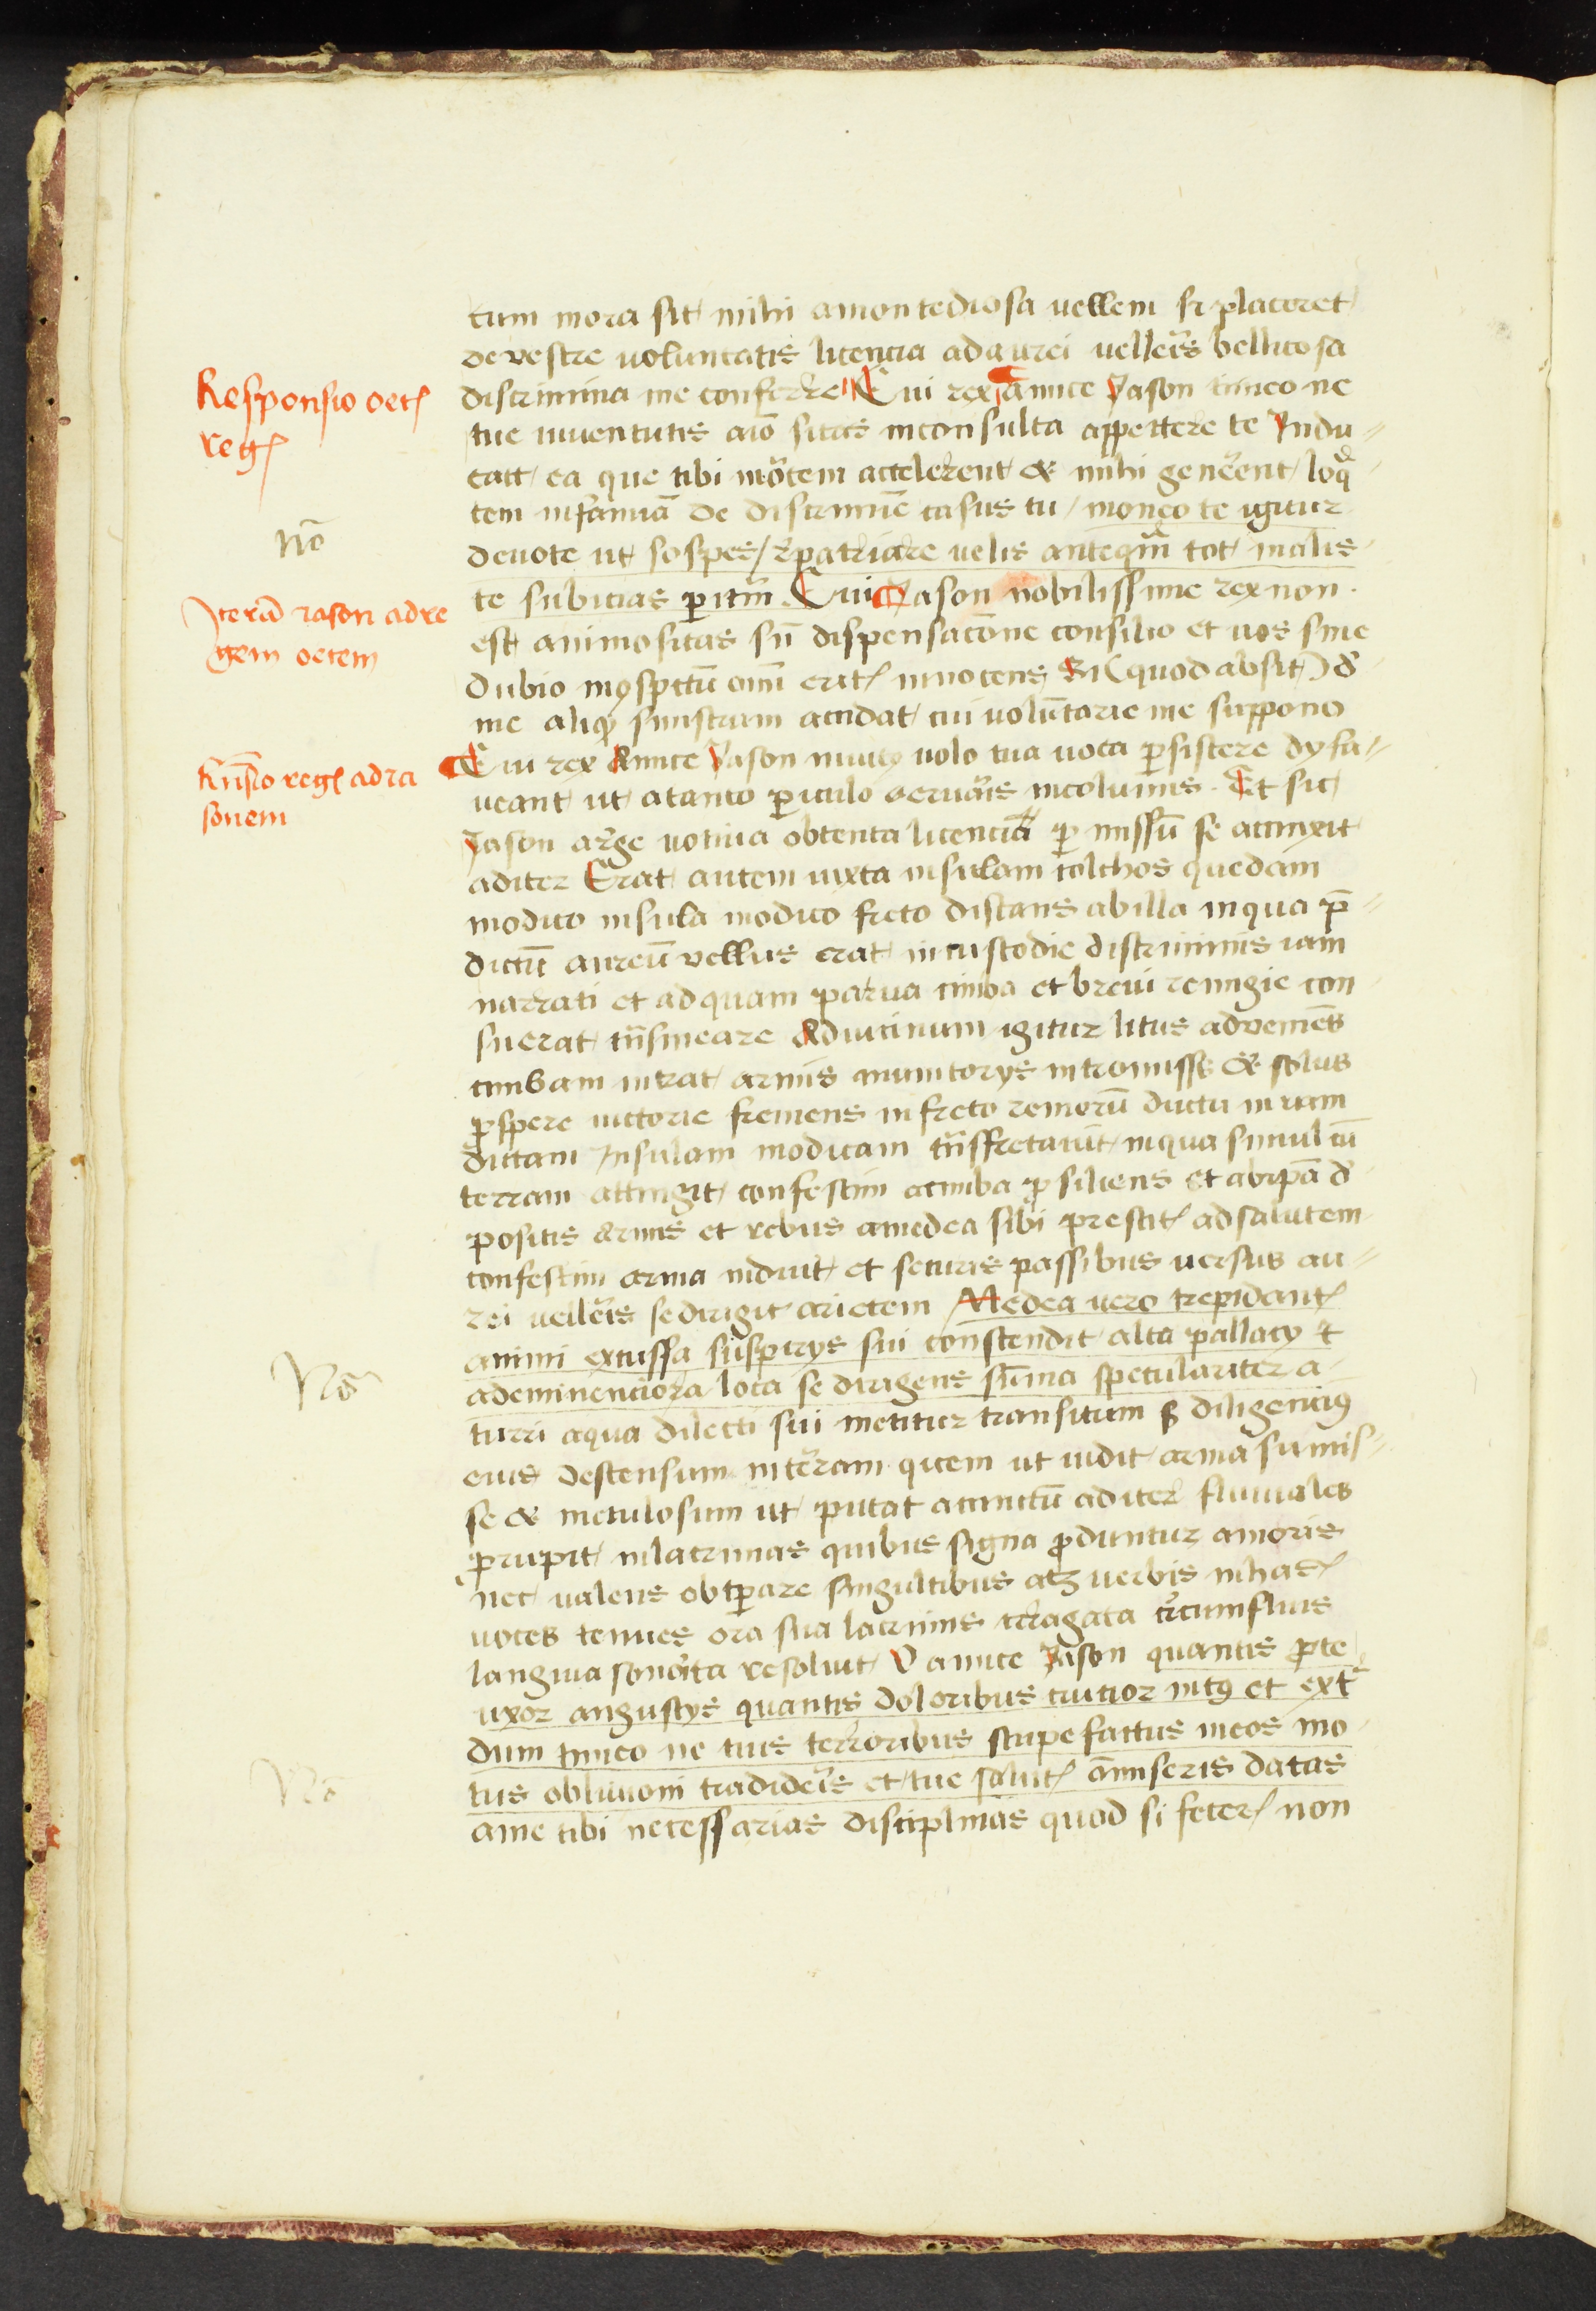 cum mora sit mihi amon tediosa vellem si placeret
de vestre voluntatis licencia ad aurei velleris bellicosa
discrimina me conferre Cui rex amice Jason timeo ne
Responsio oet&
reg&
tue iuventutis aīo sitas inconsulta appettere te Indu-
catt ea que tibi mortem accelerent & mihi generent loq
tem infamiā de discrimīe casus tu / moneo te igitur
Nō
devote ut sospes / repatriare velis anteqm tot malis
te subicias peritm̄. Cui Jason nobilissime rex non
Iterū iason ad re
gem oetem
est animositas sn̄ dispensacōne consilio et vos sine
dubio in conspectū omī erit& innocens Si (quod absit) d
me aliqd sinistrum accidat cui volūtarie me suppono
Cui rex Amice Jason invitus volo tua vota persistere dy fa-
Rn̄sio reg& ad ia
sonem
veant ut a tanto periculo servaris incolumis. Et sic
Jason a rege votiva obtenta licencia permissū se accinxit
ad iter Erat autem iuxta insulam colchos quedam
modico insula modico freto distans ab illa in qua p̄
dictū aureū vellus erat in custodie discriminis iam
narrati et ad quam parva cimba et brevi remigie con
suerat tn̄smeare Ad vicinum igitur litus adveniēs
cimbam intrat armis munitorys intromissis & solus
prospere victorie fremens in freto remorū ductu in iam
dictam Insulam modicam tn̄sfretavit in qua simul cū
terram attingit confestim a cimba prosiliens et ab ipā d
positis armis et rebus a medea sibi prestit& ad salutem
confestim arma induit et securis passibus versus au-
rei velleris se dirigit arietem Medea vero trepidant&
animi excussa suspirys sui conscendit alta pallacy &
Nō
ad eminenciora loca se dirigens sūma speculariter a
turri a qua dilecti sui metitur transitum & diligencius
eius descensum in terram quem ut vidit arma sumis-
se & metulosum ut putat accinctū ad iter fluviales
prorupit in lacrimas quibus signa produntur amoris
nec valens obtperare singultibus atque verbis in has&
voces tenues ora sua lacrimis irragata circumfluis
langwia sonorita resolvit O amice Jason quantis pro te
uxor angustys quantis doloribus crucior intus et ext
dum timeo ne tuis terroribus stupefactus meos mo
tus oblivioni tradideris et tue salut& amiseris datas
Nō
a me tibi necessarias disciplinas quod si fecer& non